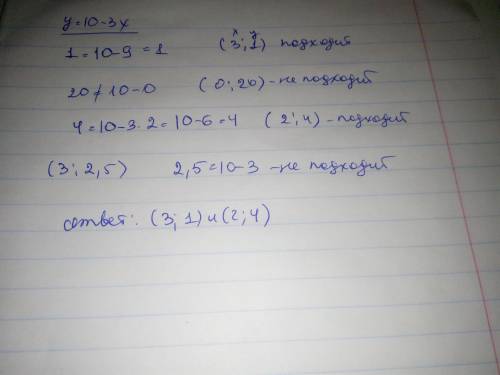 y=10-3x
1=10-9=1 (3;1) подходит
x y
20≠10-0 (0;20)-не подходит
4=10-3·2=10-6=4 (2;4)-подходит
(3;2,5) 2,5=10-3 -не подходит
ответ: (3;1) и (2;4)